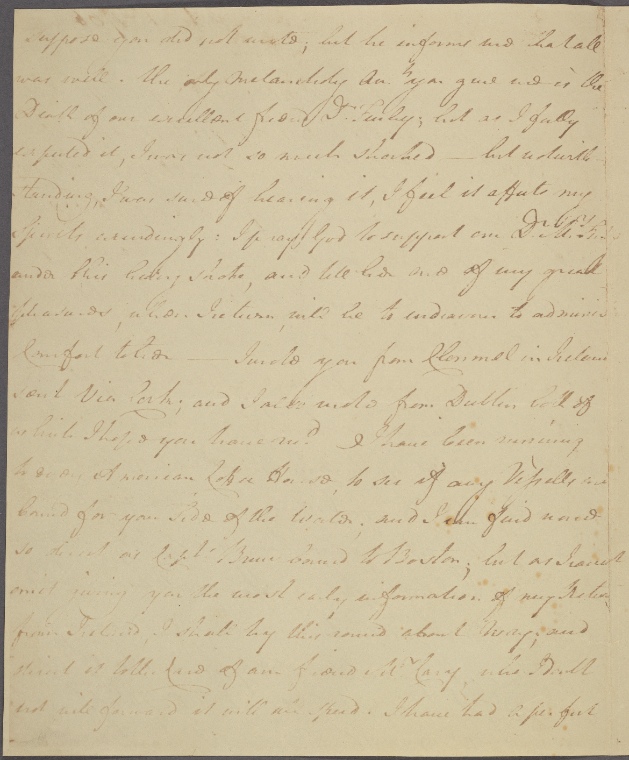 suppose you did not write; but he informs me that all
was well. the only melancholy Acct. you give me is the
Death of our excellent friend Dr. ; but as I fully
expected it, I was not so much shocked — but notwith
standing, I was sure of hearing it, I feel it affects my
Spirits exceedingly: I pray God to support our Dr.
under this heavy stroke, and tell her one of my great
pleasures, when I return, will be to endeavour to adminis
Comfort to her — I wrote you from Clonmel in Ireland
sent Via Cork; and I also wrote from Dublin both of
which I hope you have recd. I have been running
to every American Coffee House, to see if any Vessells are
bound for your side of the Water, and I can find none
so direct as Capt. bound to Boston; but as I cannot
omit giving you the most early information of my Return
from Ireland, I shall try this round about way, and
direct it to the Care of our friend Mr. Cary, who I doubt
not will forward it with all speed. I have had a perfect